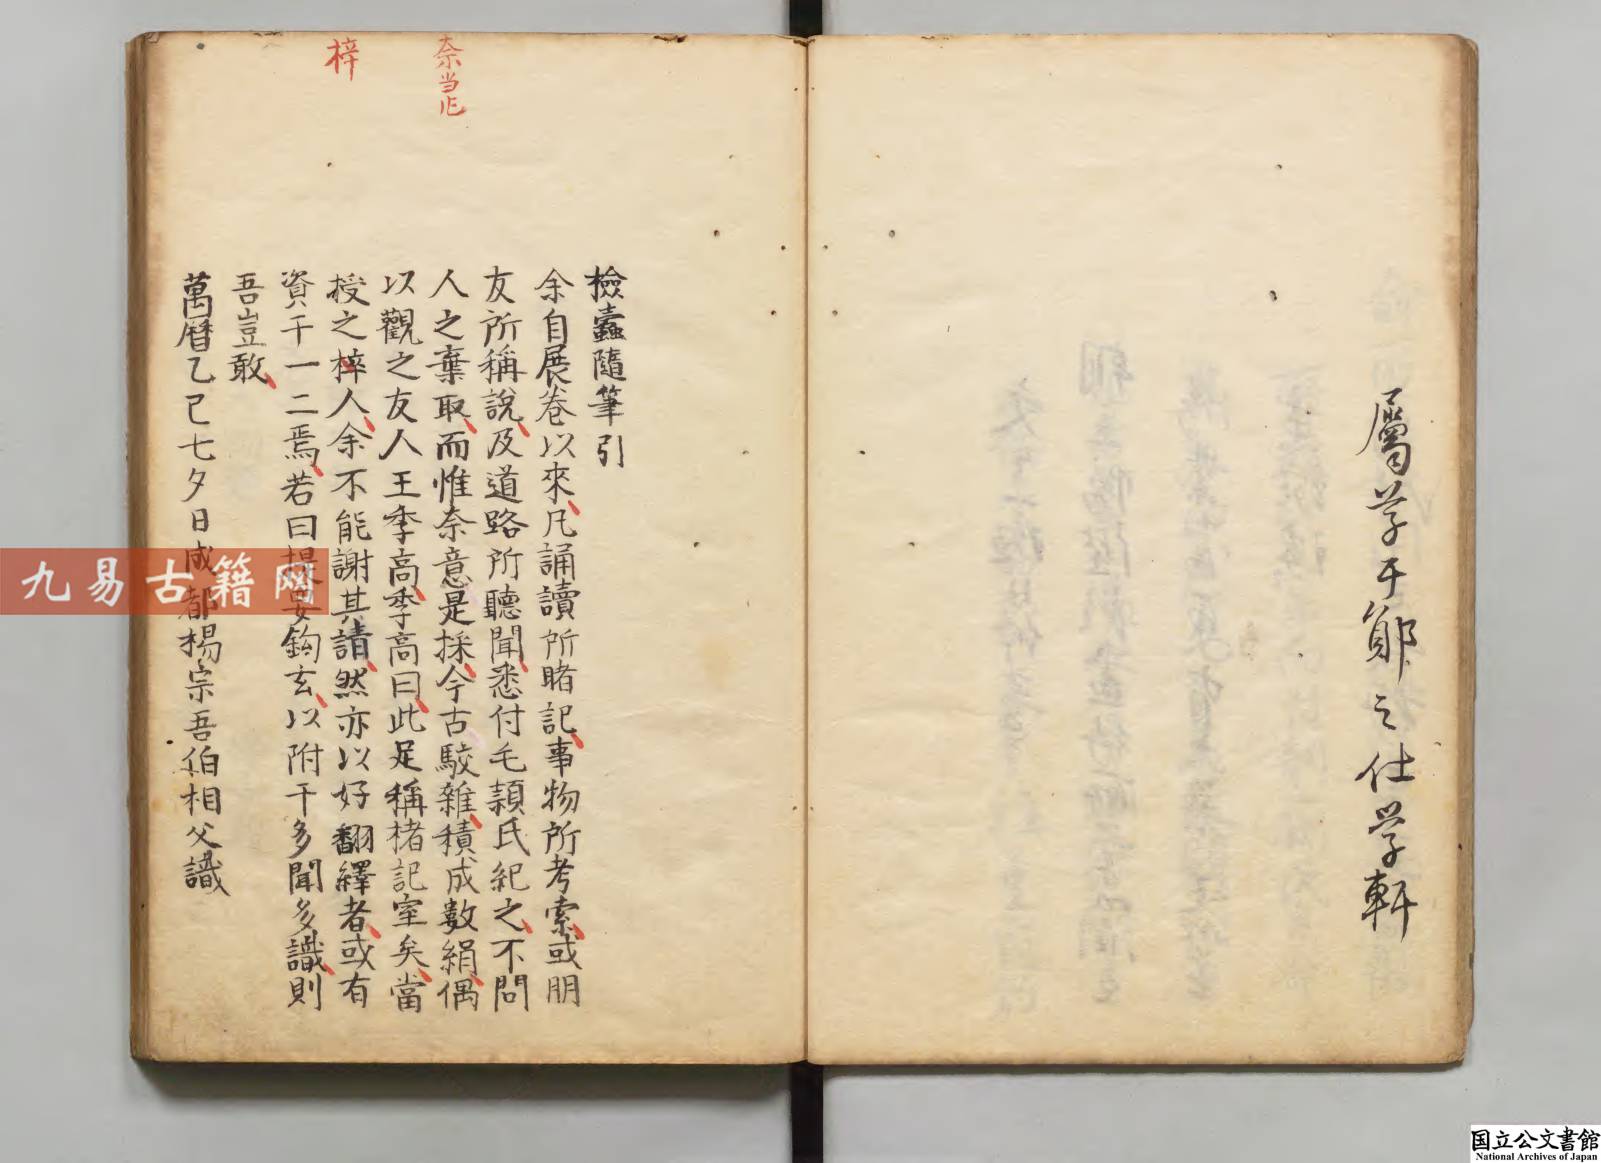 屬草于鄖之仕学軒
檢蠹隨筆引
余自展卷以來凡誦讀所睹記事物所考索或朋
友所稱說及道路所聽聞悉付毛頴氏紀之不問
人之棄取而惟奈意是採今古駁雜積成數絹偶
以觀之友人王季高季高曰此足稱楮記室矣當
授之梓人余不能謝其請然亦以好翻繹者或有
資于一二焉若曰提要鈎玄以附于多聞多識則
吾豈敢
萬曆乙巳七夕日成都楊宗吾伯相父識
奈当作
梓
九易古籍网
国立公文書館
National Archives of Japan